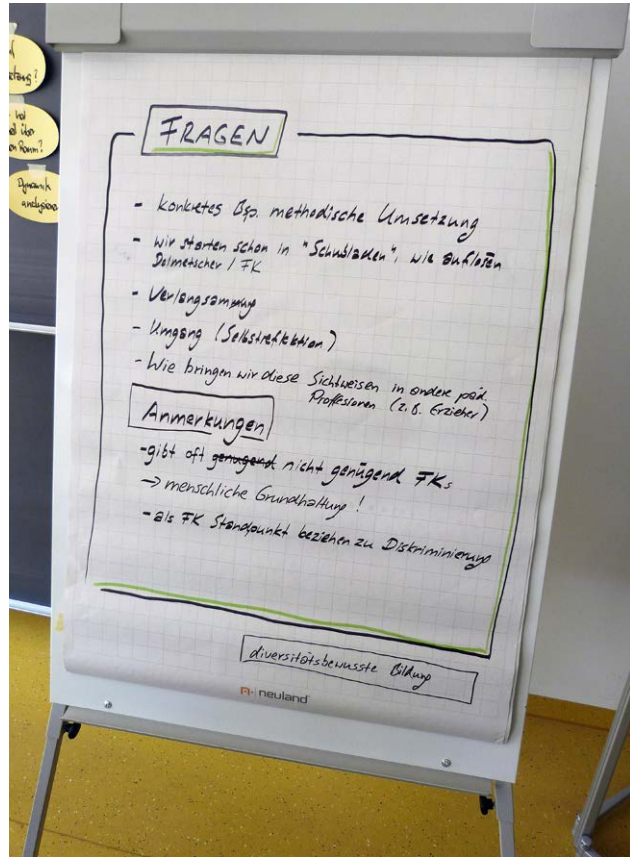 etzung?
hat
über
Raum?
Dynamik
analysieren
FRAGEN
- konkretes Bsp. methodische Umsetzung
- wir starten schon in "Schubladen", wie auflösen
Dolmetscher / FK
- Verlangsamung
- Umgang (Selbstreflektion)
- Wie bringen wir diese Sichtweisen in andere päd.
Professionen (z.B. Erzieher)
Anmerkungen
- gibt oft genügend nicht genügend FKs
→ menschliche Grundhaltung!
- als FK Standpunkt beziehen zu Diskriminierung
diversitätsbewusste Bildung
neuland